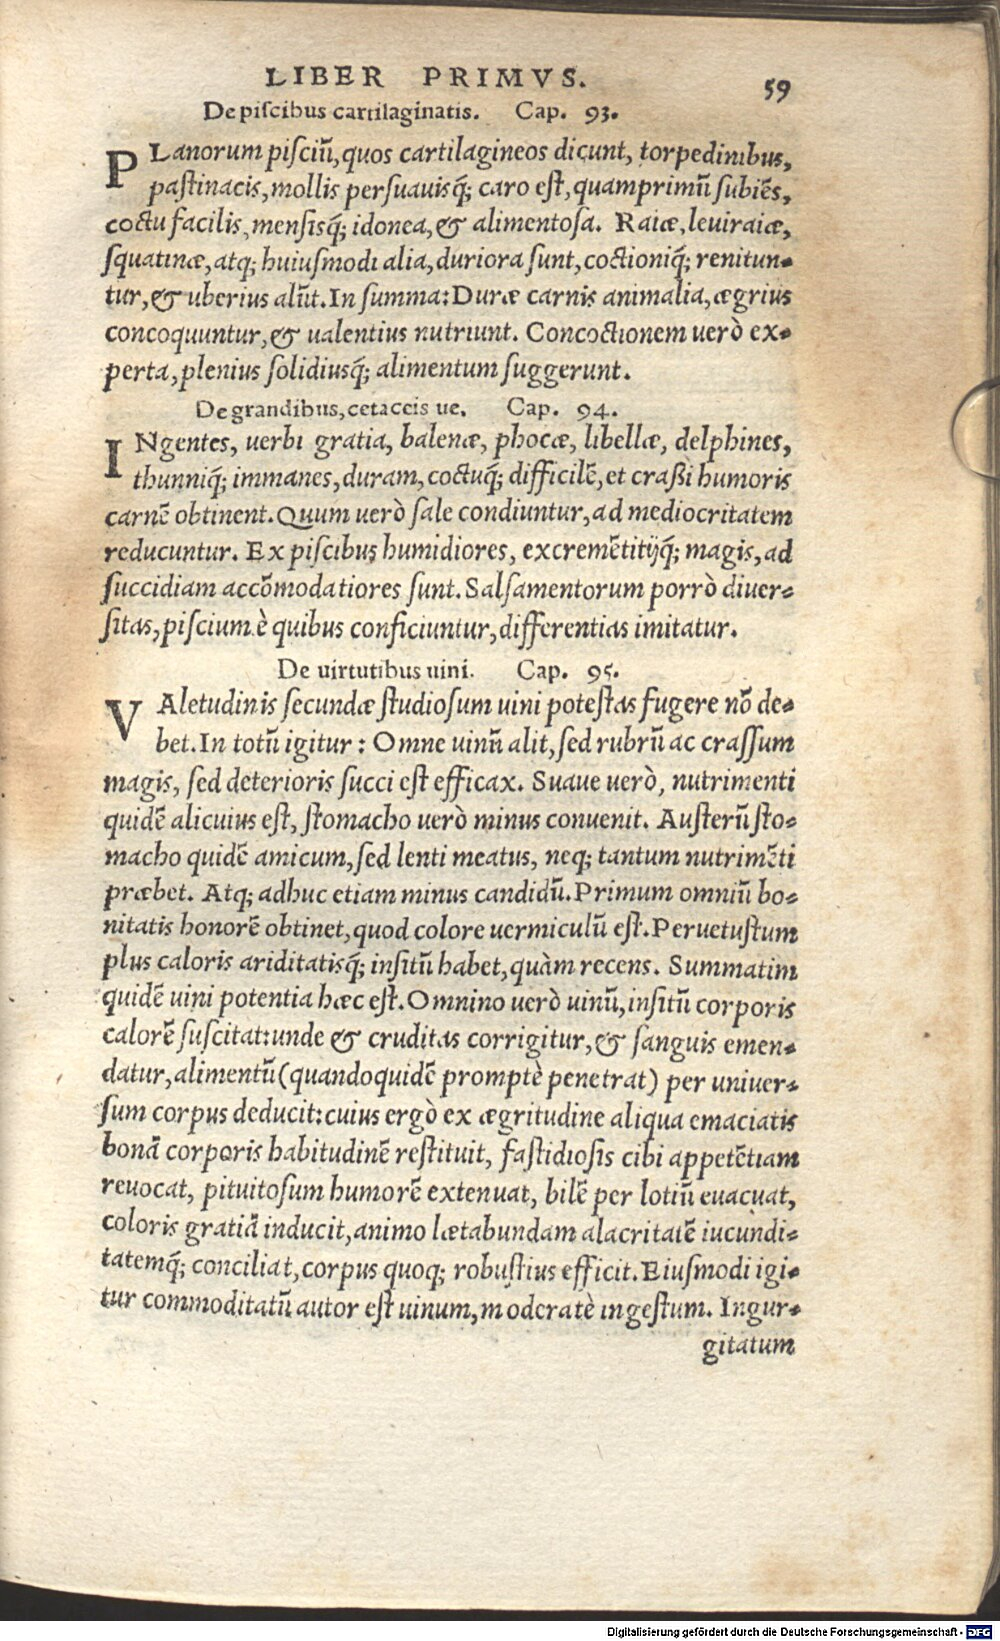 LIBER PRIMVS. 59
De piſcibus cartilaginatis. Cap. 93.
PLanorum piſciũ, quos cartilagineos dicunt, torpedinibus,
paſtinacis, mollis perſuauisq́; caro eſt, quamprimũ ſubiẽs,
coctu facilis, menſisq́; idonea, & alimentoſa. Raiæ, leuiraiæ,
ſquatinæ, atq; huiuſmodi alia, duriora ſunt, coctioniq́; renitun⸗
tur, & uberius alũt. In ſumma: Duræ carnis animalia, ægrius
concoquuntur, & ualentius nutriunt. Concoctionem uerò ex⸗
perta, plenius ſolidiusq́; alimentum ſuggerunt.
De grandibus, cetaceis ue. Cap. 94.
INgentes, uerbi gratia, balenæ, phocæ, libellæ, delphines,
thunniq́; immanes, duram, coctuq́; difficilẽ, et craßi humoris
carnẽ obtinent. Quum uerò ſale condiuntur, ad mediocritatem
reducuntur. Ex piſcibus humidiores, excremẽtitijq́; magis, ad
ſuccidiam accõmodatiores ſunt. Salſamentorum porrò diuer⸗
ſitas, piſcium è quibus conficiuntur, differentias imitatur.
De uirtutibus uini. Cap. 95.
VAletudinis ſecundæ ſtudioſum uini poteſtas fugere nõ de⸗
bet. In totũ igitur : Omne uinũ alit, ſed rubrũ ac craſſum
magis, ſed deterioris ſucci eſt efficax. Suaue uerò, nutrimenti
quidẽ alicuius eſt, ſtomacho uerò minus conuenit. Auſterũ ſto⸗
macho quidẽ amicum, ſed lenti meatus, neq; tantum nutrimẽti
præbet. Atq; adhuc etiam minus candidũ. Primum omniũ bo⸗
nitatis honorẽ obtinet, quod colore uermiculũ eſt. Peruetuſtum
plus caloris ariditatisq́; inſitũ habet, quàm recens. Summatim
quidẽ uini potentia hæc eſt. Omnino uerò uinũ, inſitũ corporis
calorẽ ſuſcitat: unde & cruditas corrigitur, & ſanguis emen⸗
datur, alimentũ (quandoquidẽ promptè penetrat) per uniuer⸗
ſum corpus deducit: cuius ergò ex ægritudine aliqua emaciatis
bonã corporis habitudinẽ reſtituit, faſtidioſis cibi appetẽtiam
reuocat, pituitoſum humorẽ extenuat, bilẽ per lotiũ euacuat,
coloris gratiã inducit, animo lætabundam alacritatẽ iucundi⸗
tatemq́; conciliat, corpus quoq; robuſtius efficit. Eiuſmodi igi⸗
tur commoditatũ autor eſt uinum, moderatè ingeſtum. Ingur⸗
gitatum
Digitalisierung gefördert durch die Deutsche Forschungsgemeinschaft - DFG